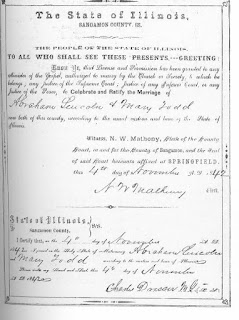 The State of Illinois,
SANGAMON COUNTY, SS.
THE PEOPLE OF THE STATE OF ILLINOIS,
TO ALL WHO SHALL SEE THESE PRESENTS,---GREETING:
Know Ye, that License and Permission has been granted to any
Minister of the Gospel, authorized to marry by the Church or Society to which he
belongs; any Justice of the Supreme Court; Justice of any Inferior Court, or any
Justice of the Peace, to Celebrate and Ratify the Marriage of
Abraham Lincoln & Mary Todd
now both of this county, according to the usual custom and laws of the State of
Illinois.
Witness, N. W. Matheny, Clerk of the County
Court, in and for the County of Sangamon, and the Seal
of said Court hereunto affixed at SPRINGFIELD,
this 4th day of November A. D. 1842
N W Matheny Clerk.
State of Illinois,
Sangamon County, SS.
I Certify, that on the 4th day of November A. D.
1842 I joined in the Holy State of Matrimony Abraham Lincoln
& Mary Todd according to the custom and laws of Illinois.
Given under my hand and Seal, this 4th day of November
A. D. 1842
Charles Dresser